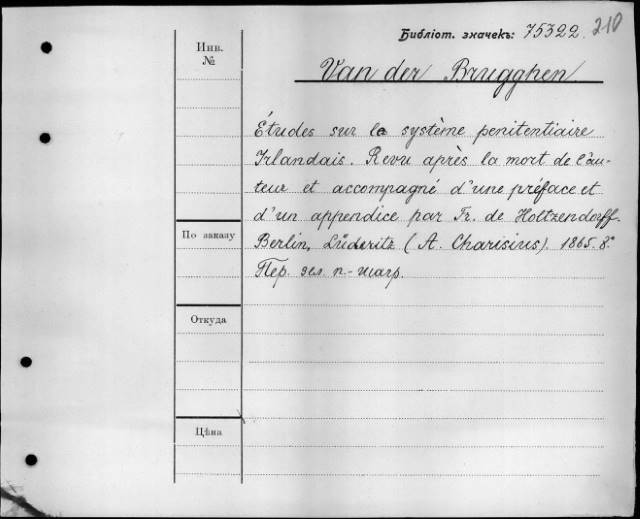 Библіот. значекъ: 75322. 210
Инв.
№
Van der Brugghen
Études sur le système penitentiaire
Irlandais. Revu après la mort de l'au-
teur et accompagné d'une préface et
d'un appendice par Fr. de Holtzendorff.
По заказу
Berlin, Lüderitz (A. Charisius). 1865. 8°.
Пер. зел. п.-шагр.
Откуда
Цѣна